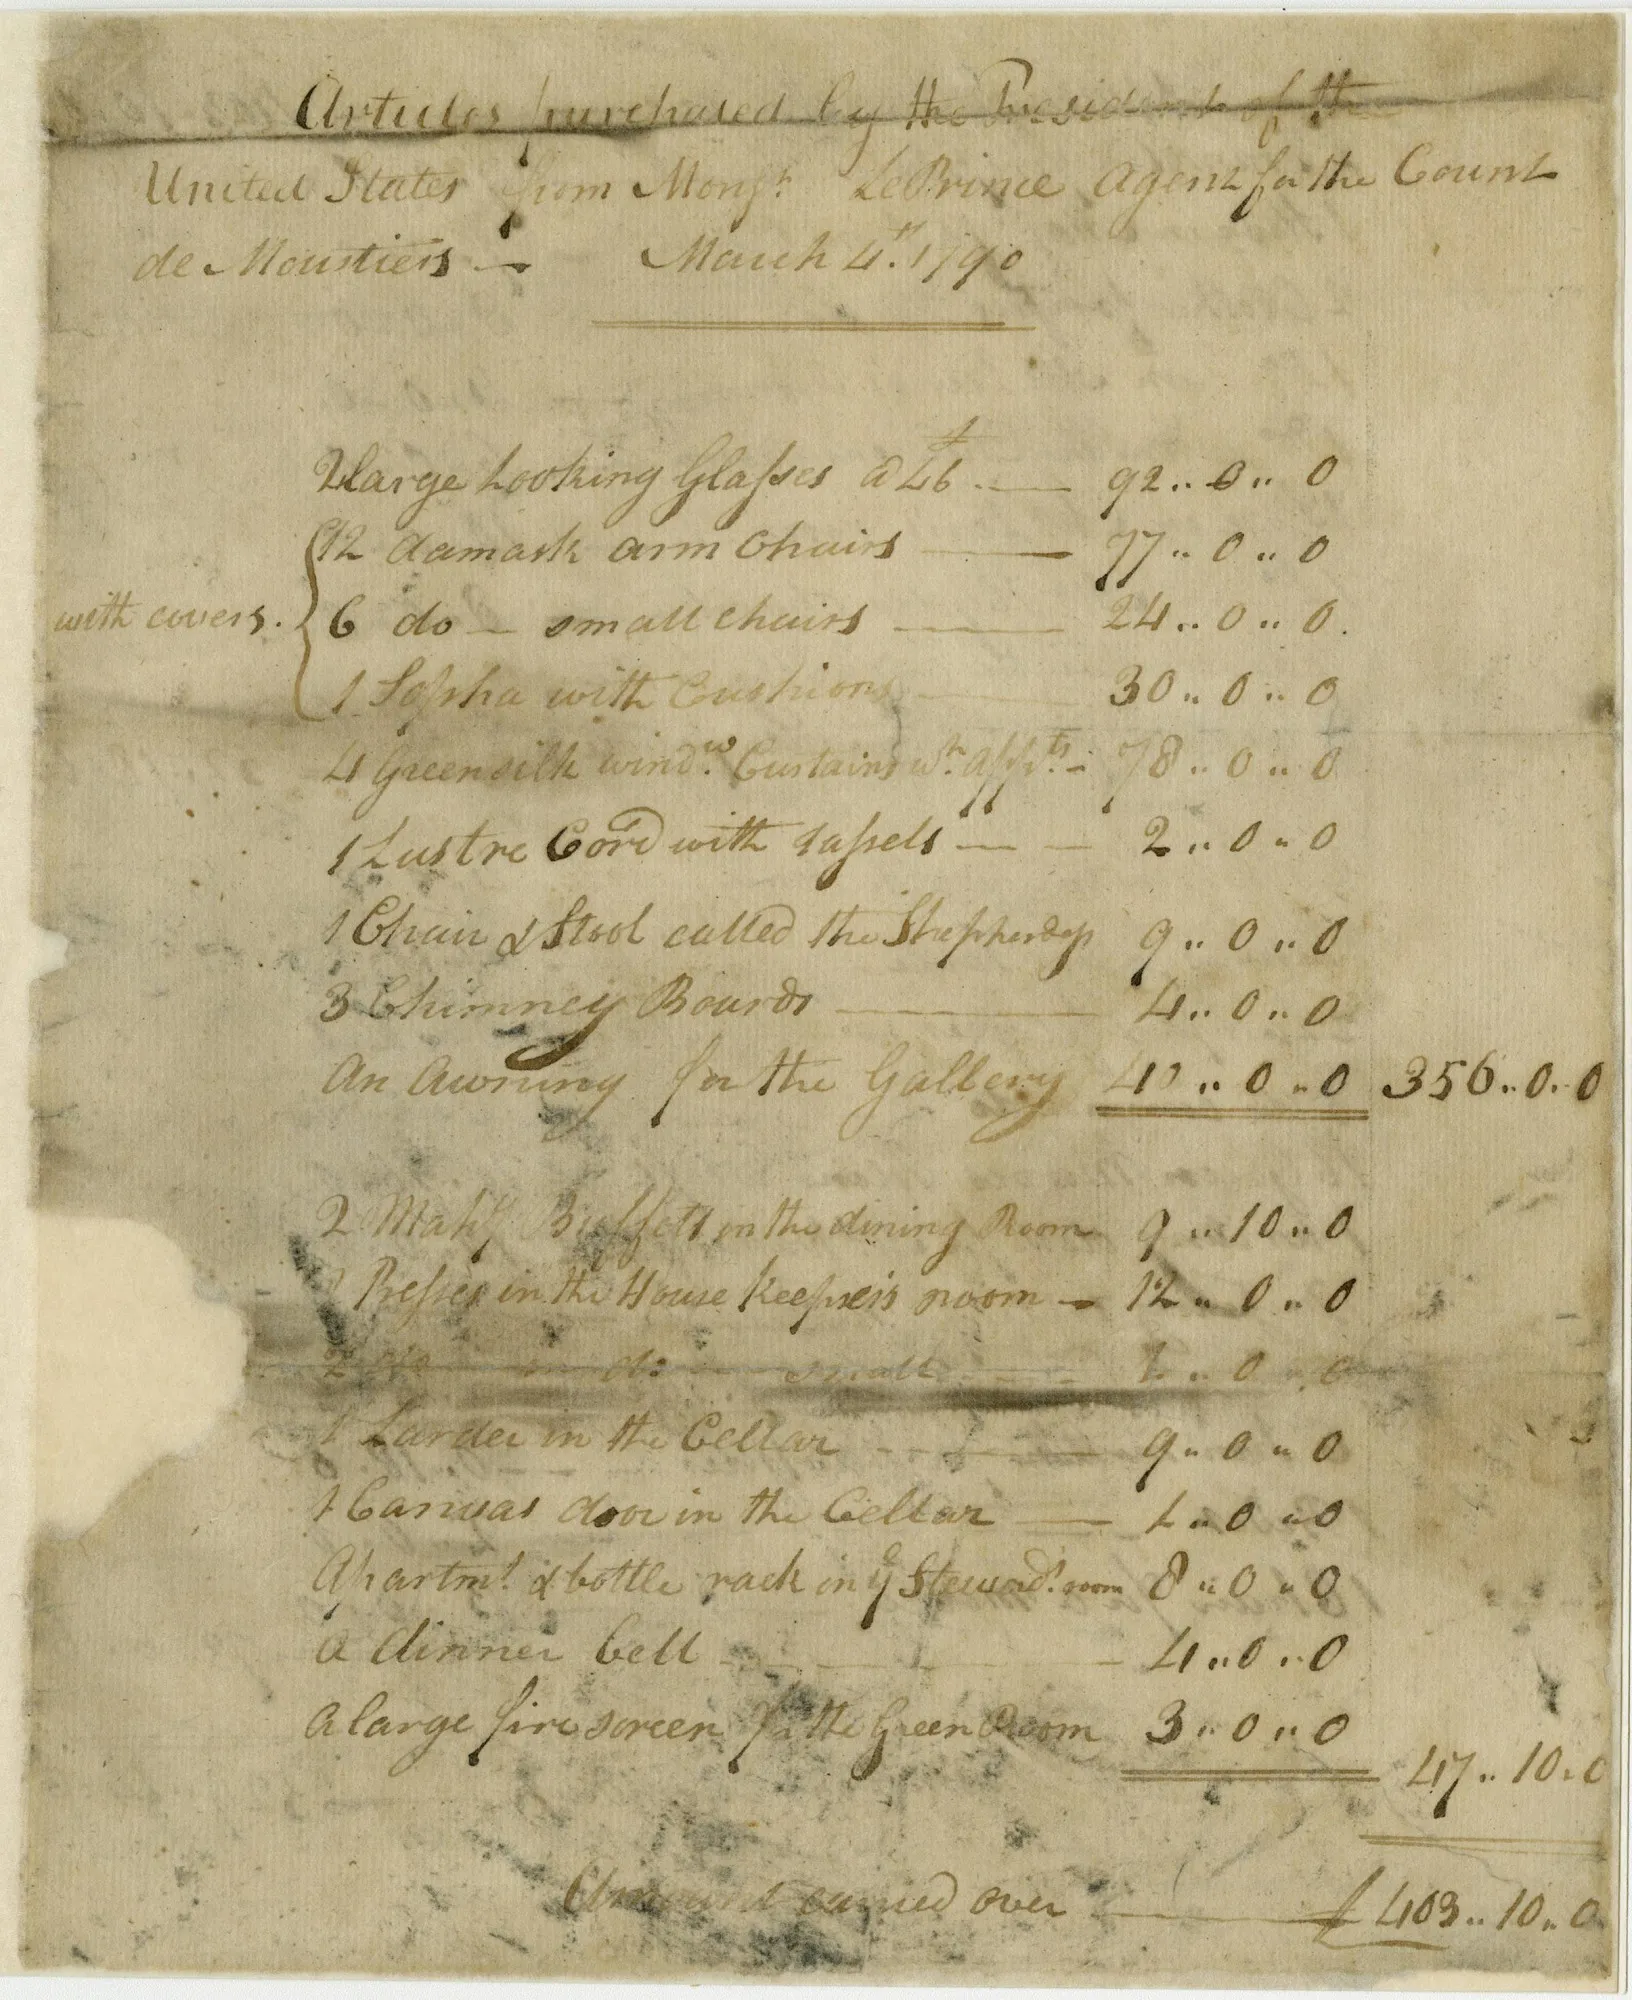 Articles purchased by the President of the
United States from Monsr. Le Prince Agent for the Count
de Moustiers — March 4th. 1790
2 large Looking Glasses a £46. — 92 .. 0 .. 0
12 damask arm Chairs — 77 .. 0 .. 0
with covers. { 6 do — small chairs — 24 .. 0 .. 0.
1 Sopha with Cushions — 30 .. 0 .. 0
4 Green silk windw. Curtains wh. appts. - 78 .. 0 .. 0
1 Lustre Cord with tassels — — 2 .. 0 .. 0
1 Chair & Stool called the Shepherdess 9 .. 0 .. 0
3 Chimney Boards — 4 .. 0 .. 0
An Awning for the Gallery 40 .. 0 .. 0 356 .. 0 .. 0
2 Mahy Buffetts in the dining Room 9 .. 10 .. 0
Presses in the House Keepers room — 12 .. 0 .. 0
2 do in do small 1 .. 0 .. 0
1 Larder in the Cellar — 9 .. 0 .. 0
1 Canvas door in the Cellar — 1 .. 0 .. 0
Apartmt. & bottle rack in ye Steward's room 8 .. 0 .. 0
A dinner bell — 4 .. 0 .. 0
A large fire screen for the Green Room 3 .. 0 .. 0
47 .. 10 .. 0
Amount carried over — £403 .. 10 .. 0